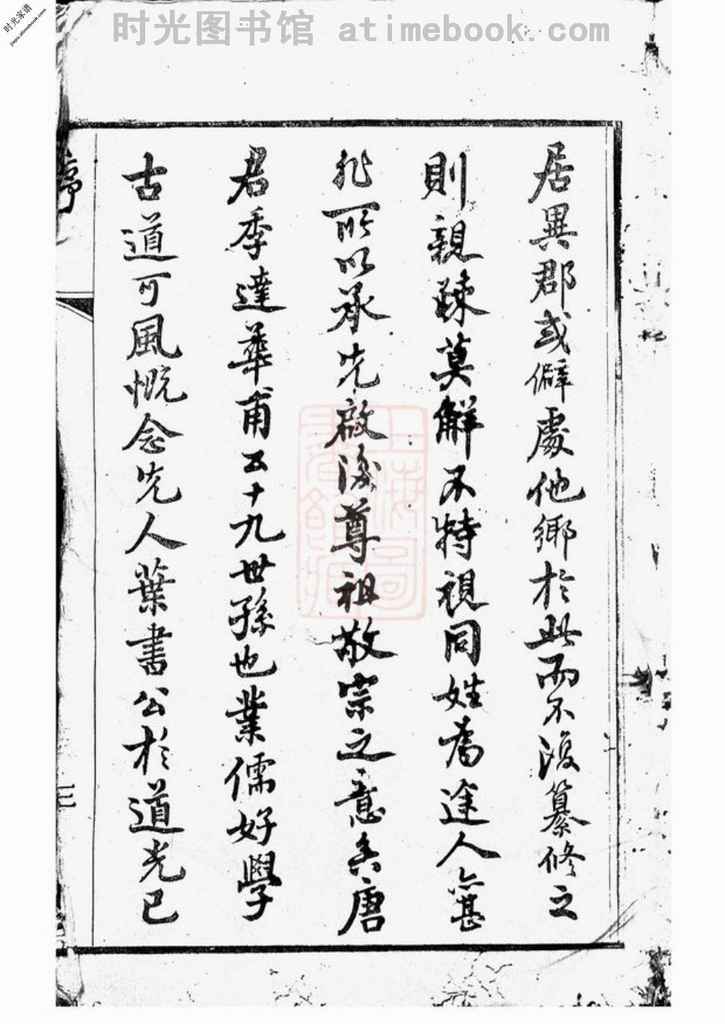 时光图书馆 atimebook.com
时光家谱
居異郡或僻處他鄉於此而不復纂修之
則親疎莫解不特視同姓為途人亦甚
非所以承先啟後尊祖敬宗之意矣唐
君季達華甫五十九世孫也業儒好學
古道可風慨念先人葉書公於道光已
序
三
上海圖書館藏